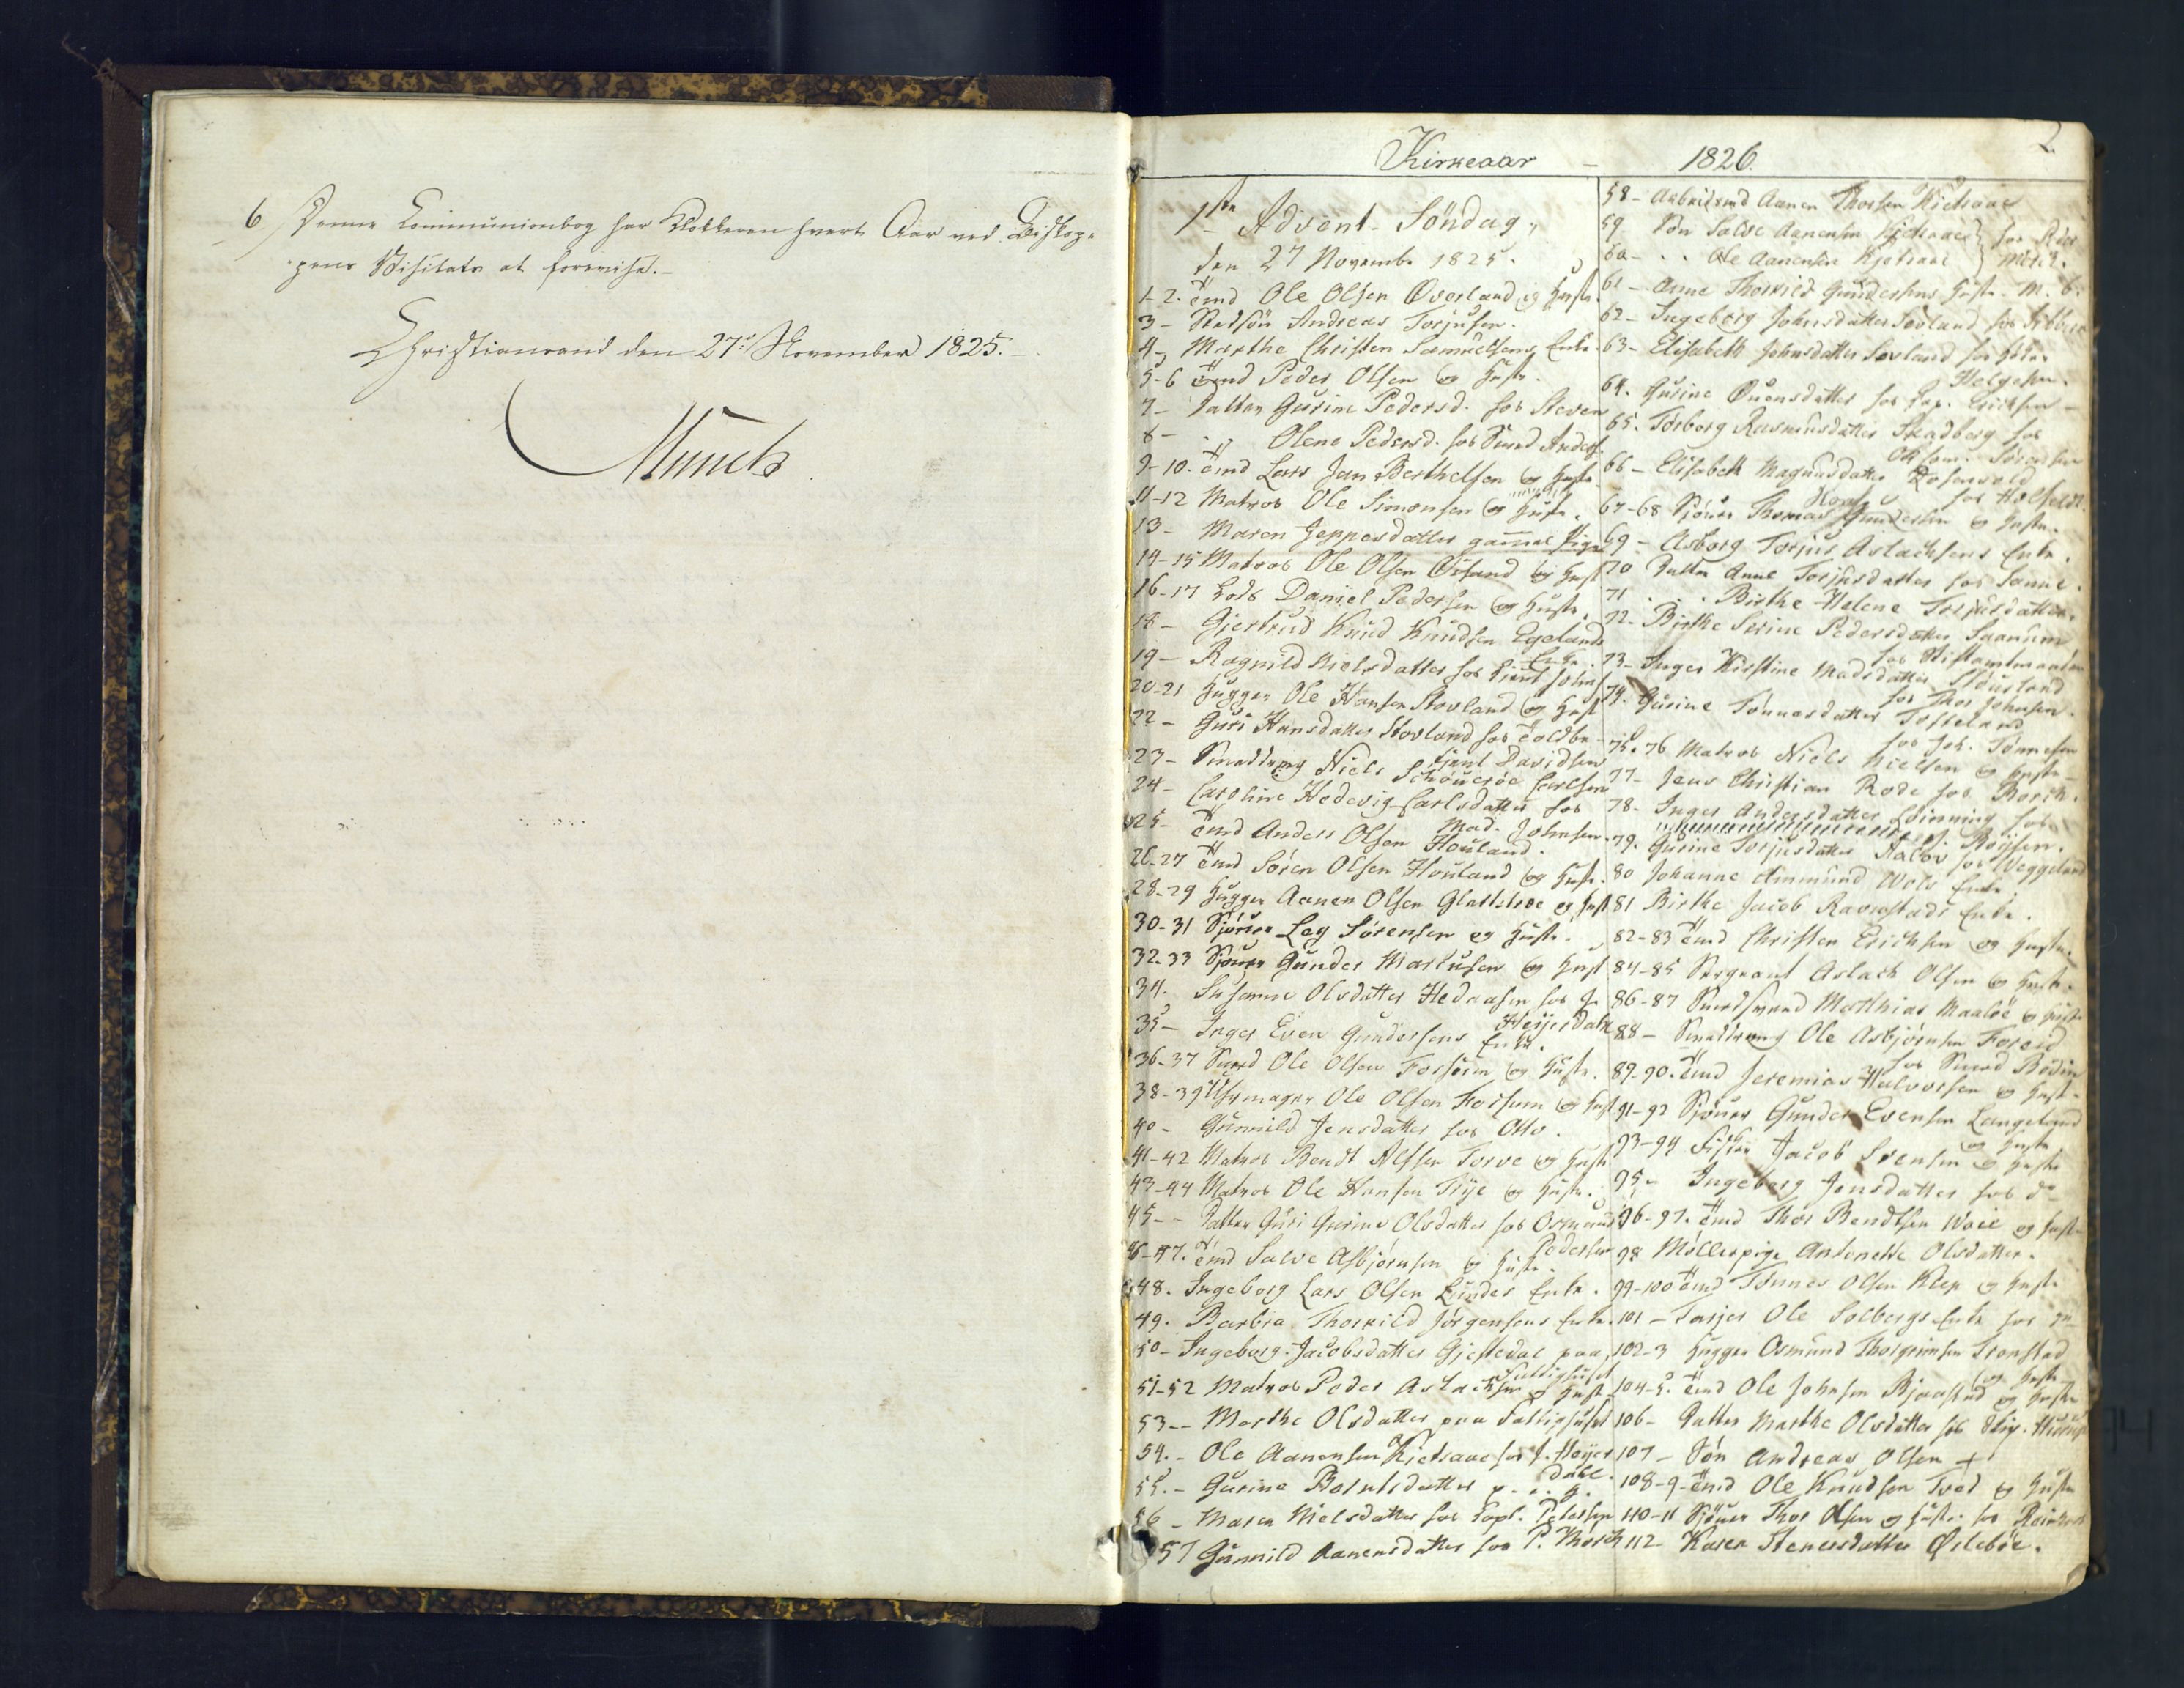 6 Denne Communionbog har Klokkeren hvert Aar ved Biskop-
pens Visitats at forevise.-
Christiansand den 27de November 1825.-
Munch
2
Kirkeaar - 1826.
1ste Advent-Söndag,
den 27 Novembr 1825.
1-2. Tmd Ole Olsen Overland og Hustr.
3- Stedsön Andreas Torjusen.
4- Marthe Christen Samuelsens Enke.
5-6 Tmd Peder Olsen og Hustr.
7- Datter Gurine Pedersd. hos Steven
8- - " Olene Pedersd. hos Smed Anders.
9-10. Tmd Lars Jan Berthelsen og Hustr.
11-12 Matros Ole Simonsen og Hustr.
13- Maren Jeppesdatter gammel Pige
14-15 Matros Ole Olsen og Hust
16-17 Lods Daniel Pedersen og Hustr.
18- Gjertrud Knud Knudsen Egelands
Enke.
19- Ragnild Nielsdatter hos
20-21 Hugger Ole Hansen Stovland og Hust
22- Guri Hansdatter Hovland hos Toldbe-
tient Davidsen
23- Smeddreng Niels Carlsen
24- Caroline Hedevig Carlsdatter hos
Mad. Johnsen.
25- Tmd Anders Olsen Houland.
26-27 Tmd Sören Olsen Houland og Hustr.
28-29 Hugger Aanen Olsen Glattetroe og Hust
30-31 Sjöuer Leg Sörensen og Hustr.
32-33 Sjöuer Gunder Markusen og Hust
34. Susanne Olsdatter Hedaasen hos J.
Heyerdahl
35- Inger Even Gundersens Enke.
36-37 Smed Ole Olsen Forsum og Hustr.
38-39 Uhrmager Ole Olsen Forsum og Hust
40- Gunnild Jensdatter hos Otto.
41-42 Matros Bendt Alfsen Torve og Hustr
43-44 Matros Ole Hansen Frye og Hustr.
45-- Datter Guri Gurine Olsdatter hos Osmund
Pedersen
46-47. Tmd Salve Asbjörnsen og Hustr.
48. Ingeborg Lars Olsen Lundes Enke.
49. Barbra Thorkild Jörgensens Enke.
50- Ingeborg Jacobsdatter Gjestedal paa
Fattighuset
51-52 Matros Peder Aslachsen og Hust
53-- Marthe Olsdatter paa Fattighuset
54.- Ole Aanensen Kietsaae hos J. Heyer
dahl.
55.- Gurine Berntsdatter
56- Maren Nielsdatter hos Capt. Petersen
57 Gunnild Aanensdatter hos P. Mörch
58- Arbeidsmd Aanen Thorsen Kietsaae
59- Sön Salve Aanensen Kietsaae hos Peder
60- - - Ole Aanensen Kjetsaae Mörch.
61- Anne Thorkild Gundersens Hustr.
62- Ingeborg Johnsdatter Sovland hos
63- Elisabeth Johnsdatter Sovland hos
Helgesen.
64. Gurine Ouensdatter hos Cap. Erichsen-
65. Torborg Rasmusdatter Skadberg hos
Sörensen
66- Elisabeth Magnusdatter Rosenvold
hos Holfeldt.
67-68 Sjöuer Thomas Gundersen og Hustr.
69- Asborg Torjus Aslachsens Enke.
70 Datter Anne Torjusdatter hos Samme.
71 - - - Birthe Helene Torjusdatter.
72- Birthe Serine Pedersdatter Saanum
hos Stiftamtmanden
73- Inger Kirstine Madsdatter
hos Thor Johnsen.
74. Gurine Tönnesdatter Tofteland
hos Joh. Tönnesen
75.76 Matros Niels Nielsen og Hustr-
77- Jens Christian Rode hos Borch.
78- Inger Andersdatter hos
Böysen.
79. Gurine Torjusdatter Aaboe hos Weggeland
80 Johanne Ammund Wols Enke
81 Birthe Jacob Ravnstads Enke.
82-83 Tmd Christen Erichsen og Hustr.
84-85 Sergeant Aslach Olsen og Hustr.
86-87 Smedsvend Mathias Maalöe og Hustr
88- Smeddreng Ole Asbjörnsen Foreid
hos Smed Bödin
89-90. Tmd Jeremias Halvorsen og Hust-
91-92 Sjöuer Gunder Evensen Langeland
og Hustr
93-94 Fisker Jacob Svensen og Hustr
95- Ingeborg Jensdatter hos do
96-97. Tmd Thor Bendtsen Woie og Hust-
98 Möllerpige Antonette Olsdatter.
99-100 Tmd Tönnes Olsen Klep og Hustr
101- Torjer Ole Solbergs Enke hos
102-3 Hugger Osmund Thorgrimsen Tronstad
og Hustr-
104-5. Tmd Ole Johnsen Bjaastad og Hustr
106- Datter Marthe Olsdatter hos
107- Sön Andreas Olsen +
108-9- Tmd Ole Knudsen Tved og Hustr
110-11 Sjöuer Thor Olsen og Hustr. hos Reinhardt
112- Karen Stenersdatter Östeböe.